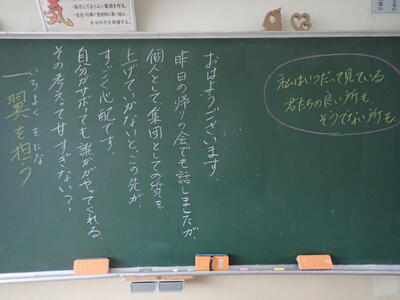 おはようございます。
昨日の帰りの会でも話しましたが、
個人として、集団としての質を
上げていかないと、この先が、
すっごく心配です。
自分がサボっても誰かがやってくれる、
その考えって甘すぎない？
いちよく をにな
一翼を担う
私はいつだって見ている。
君たちの良い所も、
そうでない所も。
気